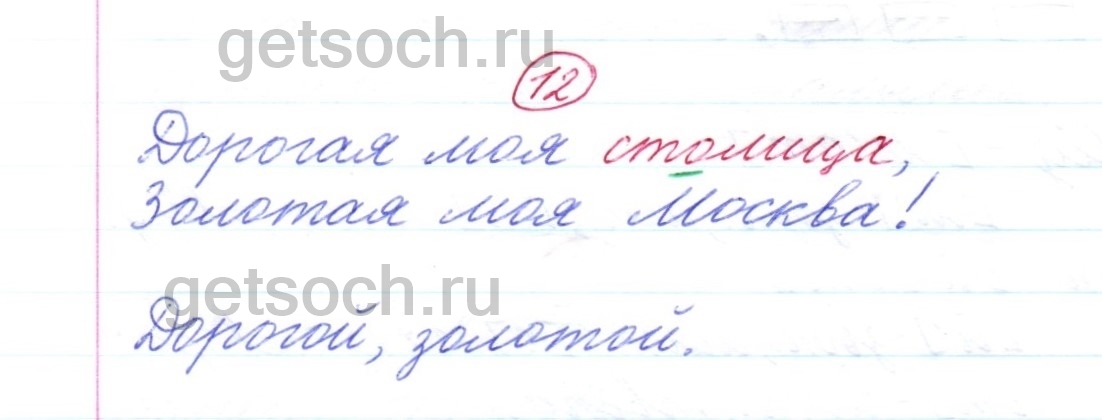 getsoch.ru
12
Дорогая моя столица,
Золотая моя Москва!
getsoch.ru
Дорогой, золотой.